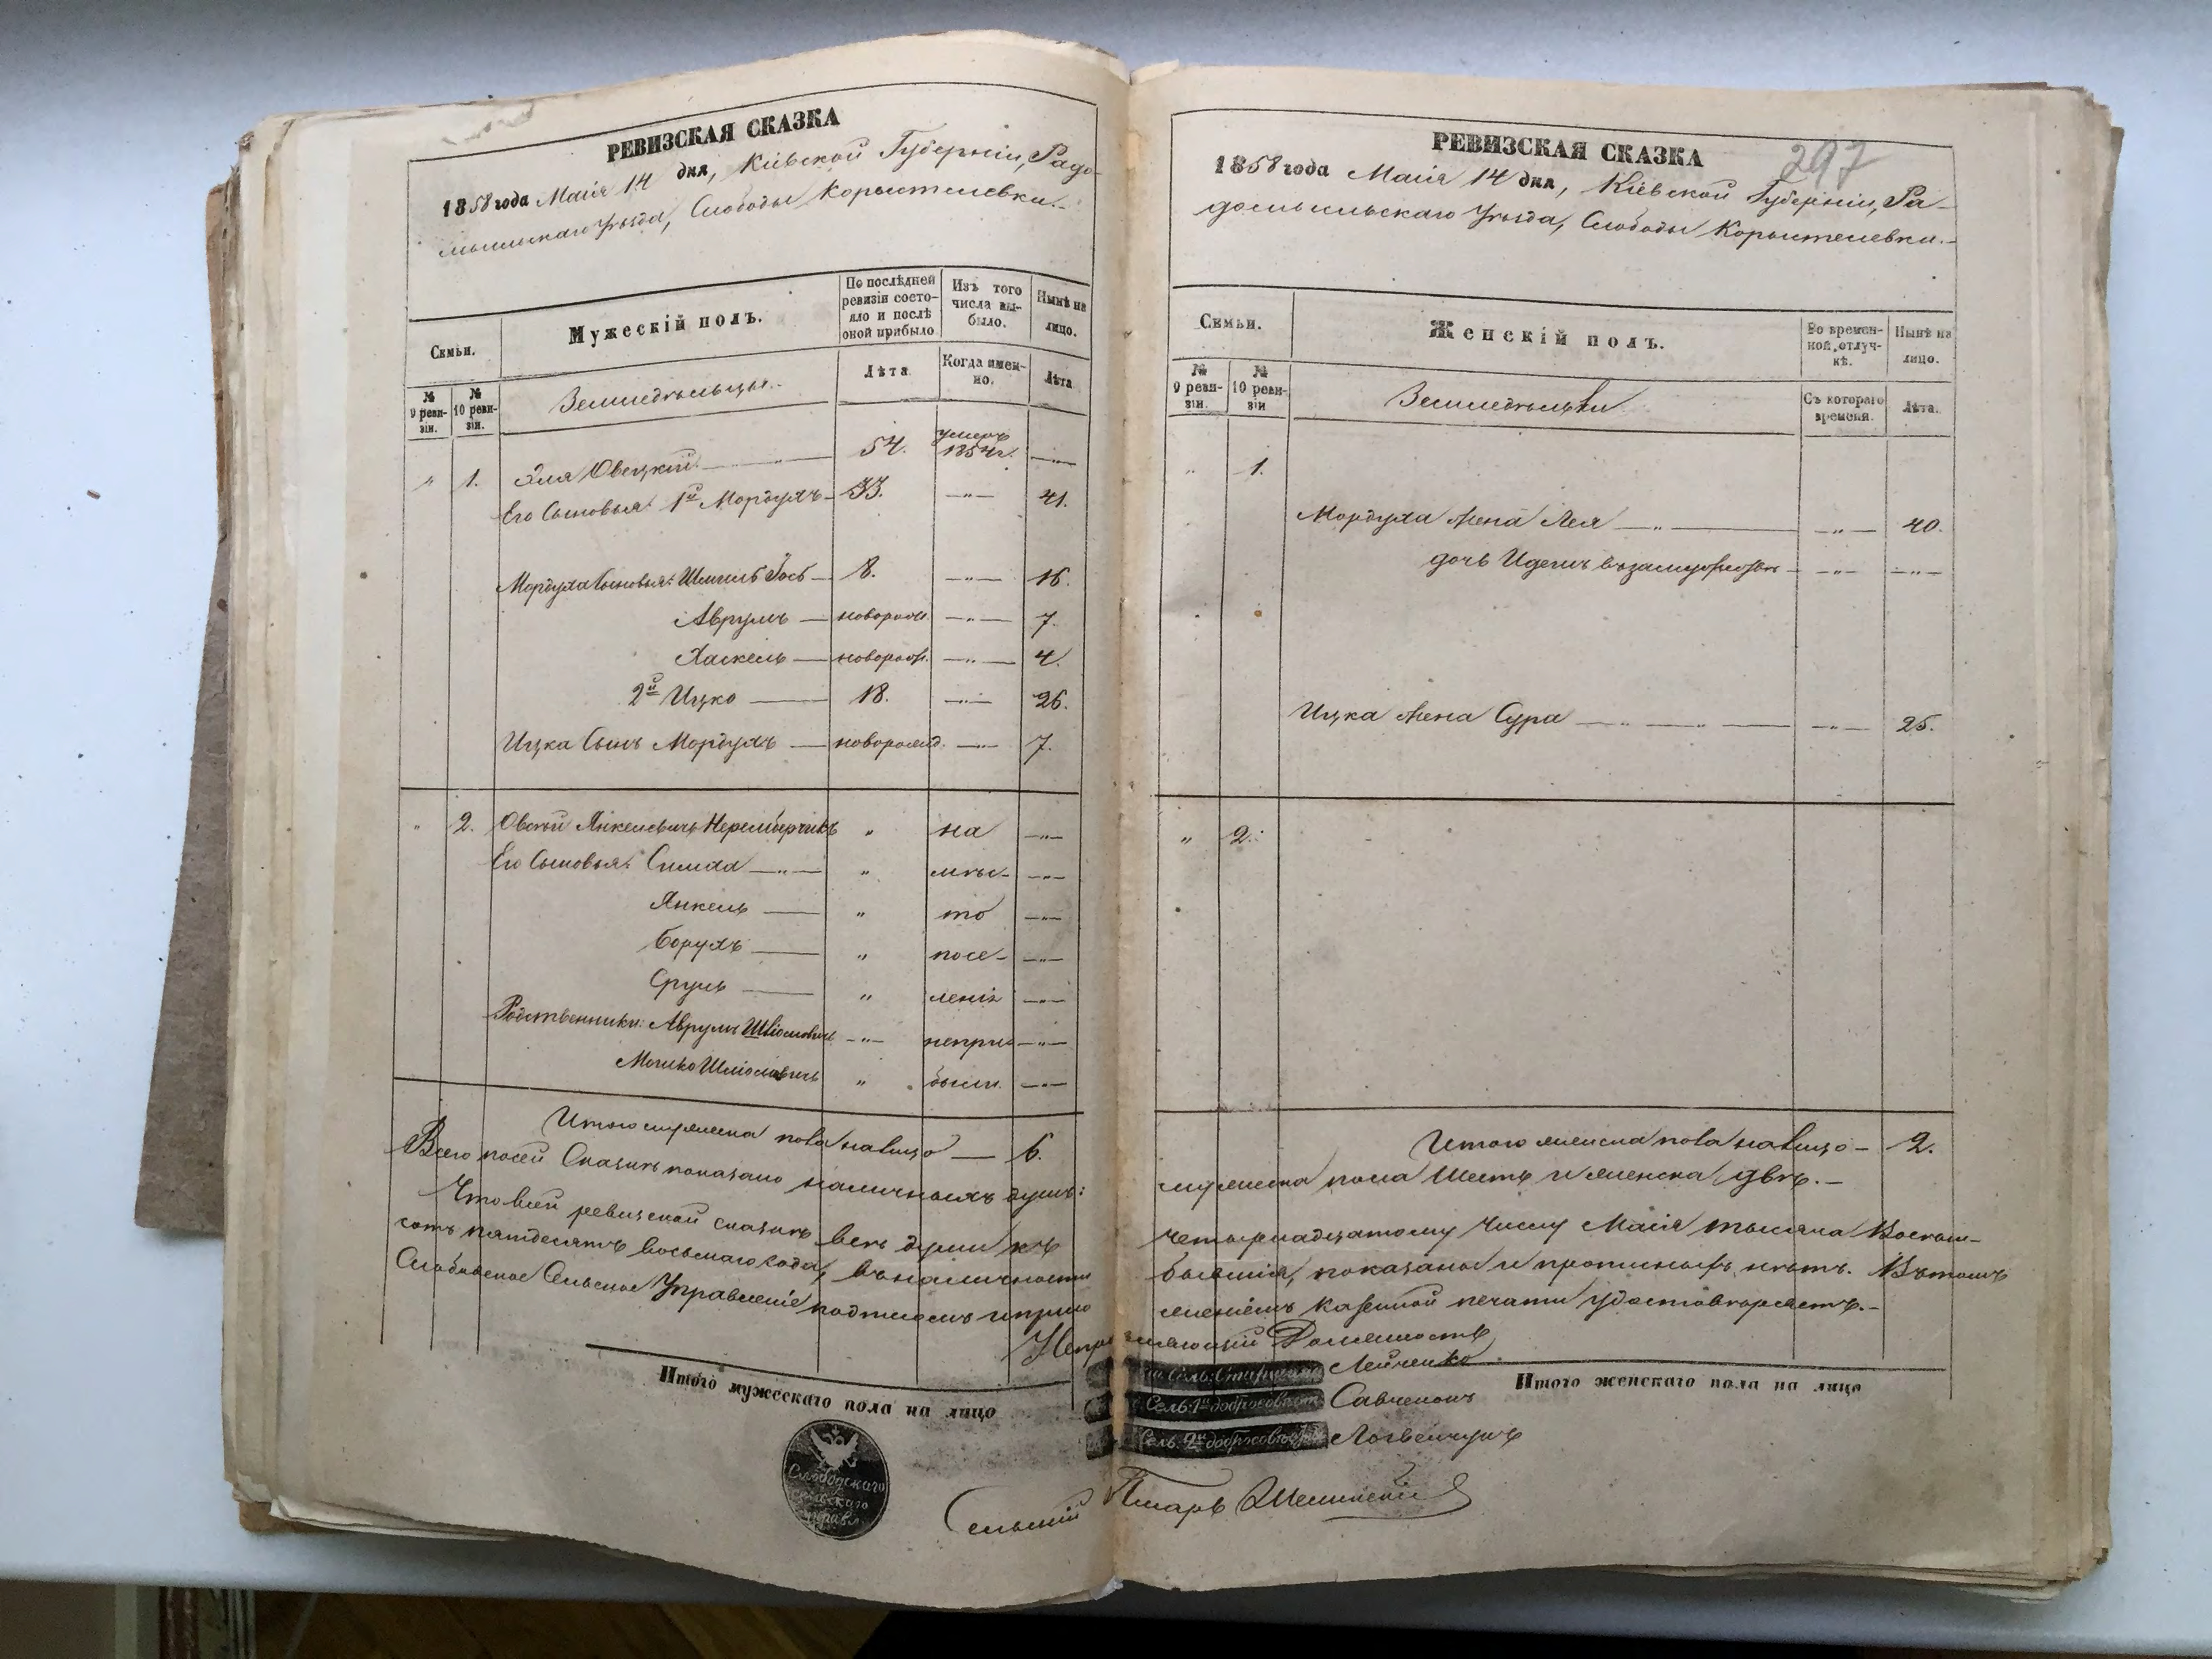 РЕВИЗСКАЯ СКАЗКА
1858 года Маія 14 дня, Кіевской Губерніи, Радо-
мысльскаго Уѣзда, Слободы Коростелевки.
Семьи.
Мужескій полъ.
По послѣдней ревизіи состояло и послѣ оной прибыло
Изъ того числа выбыло.
Нынѣ на лицо.
№ 9 ревизіи.
№ 10 ревизіи.
Земледѣльцы.
Лѣта
Когда именно.
Лѣта
" 1. Эля Овецкій 54. умеръ 1854 г. —"—
Его Сыновья: 1й Мордухъ 33. —"— 41.
Мордуха Сыновья: Шмиль Іось 8. —"— 16.
Аврумъ новорож. —"— 7.
Хаскель новорож. —"— 4.
2й Ицко 18. —"— 26.
Ицка Сынъ Мордухъ новорожд. —"— 7.
" 2. Овсей Янкелевичъ " на —"—
Его Сыновья: Симха —"— " мѣс- —"—
Янкель " то —"—
Борухъ " посе- —"—
Сруль " ленія —"—
Родственники: Аврумъ Шліомовичъ —"— непри- —"—
Мошко Шліомовичъ " были. —"—
Итого мужеска пола на лицо — 6.
Всего по сей Сказкѣ показано наличныхъ душъ:
Что въ сей ревизской сказкѣ всѣ души къ
сотъ пятдесятъ восьмаго года, въ наличности
Слободское Сельское Управленіе подписомъ и прило
Итого мужескаго пола на лицо
Слободскаго
сельскаго
управл.
РЕВИЗСКАЯ СКАЗКА
297
1858 года Маія 14 дня, Кіевской Губерніи, Ра-
домысльскаго Уѣзда, Слободы Коростелевки.
Семьи.
Женскій полъ.
Во временной отлучкѣ.
Нынѣ на лицо.
№ 9 ревизіи.
№ 10 ревизіи
Земледѣльцки
Съ котораго времени.
Лѣта.
" 1.
Мордуха жена Лея —"— —"— 40.
дочь Идесъ въ замужествѣ —"— —"—
Ицка жена Сура —"— —"— 25.
" 2.
Итого женска пола на лицо — 2.
мужеска пола Шесть и женска двѣ.
четырнадцатому числу Маія тысяча Восемь-
бывшія, показаны и прописныхъ нѣтъ. Въ томъ
женіемъ казенной печати удостовѣряетъ.
Исправляющій Должность
Сель: Старшины Лейченко
Сель: 1й добросовѣстн. Савченокъ
Сель: 2й добросовѣстн. Логвенчукъ
Сельскій Писарь
Итого женскаго пола на лицо